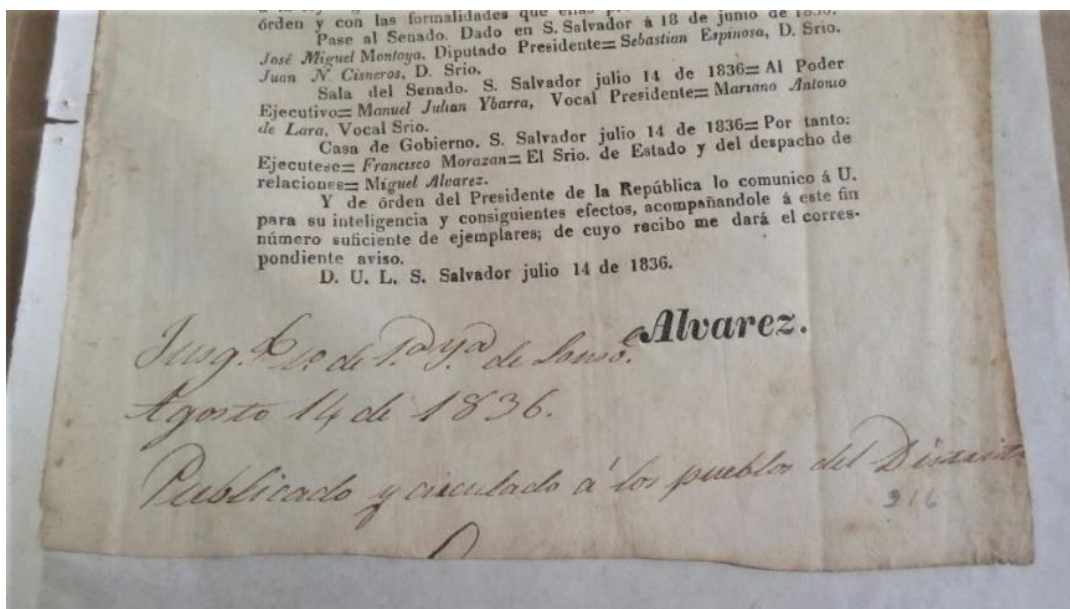 órden y con las formalidades que
Pase al Senado. Dado en S. Salvador á 18 de junio de 1836.
José Miguel Montoya, Diputado Presidente= Sebastian Espinosa, D. Srio.
Juan N. Cisneros, D. Srio.
Sala del Senado. S. Salvador julio 14 de 1836= Al Poder
Ejecutivo= Manuel Julian Ybarra, Vocal Presidente= Mariano Antonio
de Lara, Vocal Srio.
Casa de Gobierno. S. Salvador julio 14 de 1836= Por tanto:
Ejecutese= Francisco Morazan= El Srio. de Estado y del despacho de
relaciones= Miguel Alvarez.
Y de órden del Presidente de la República lo comunico á U.
para su inteligencia y consiguientes efectos, acompañandole á este fin
número suficiente de ejemplares; de cuyo recibo me dará el corres-
pondiente aviso.
D. U. L. S. Salvador julio 14 de 1836.
Alvarez.
Agosto 14 de 1836.
Publicado y circulado á los pueblos del Distrito
216